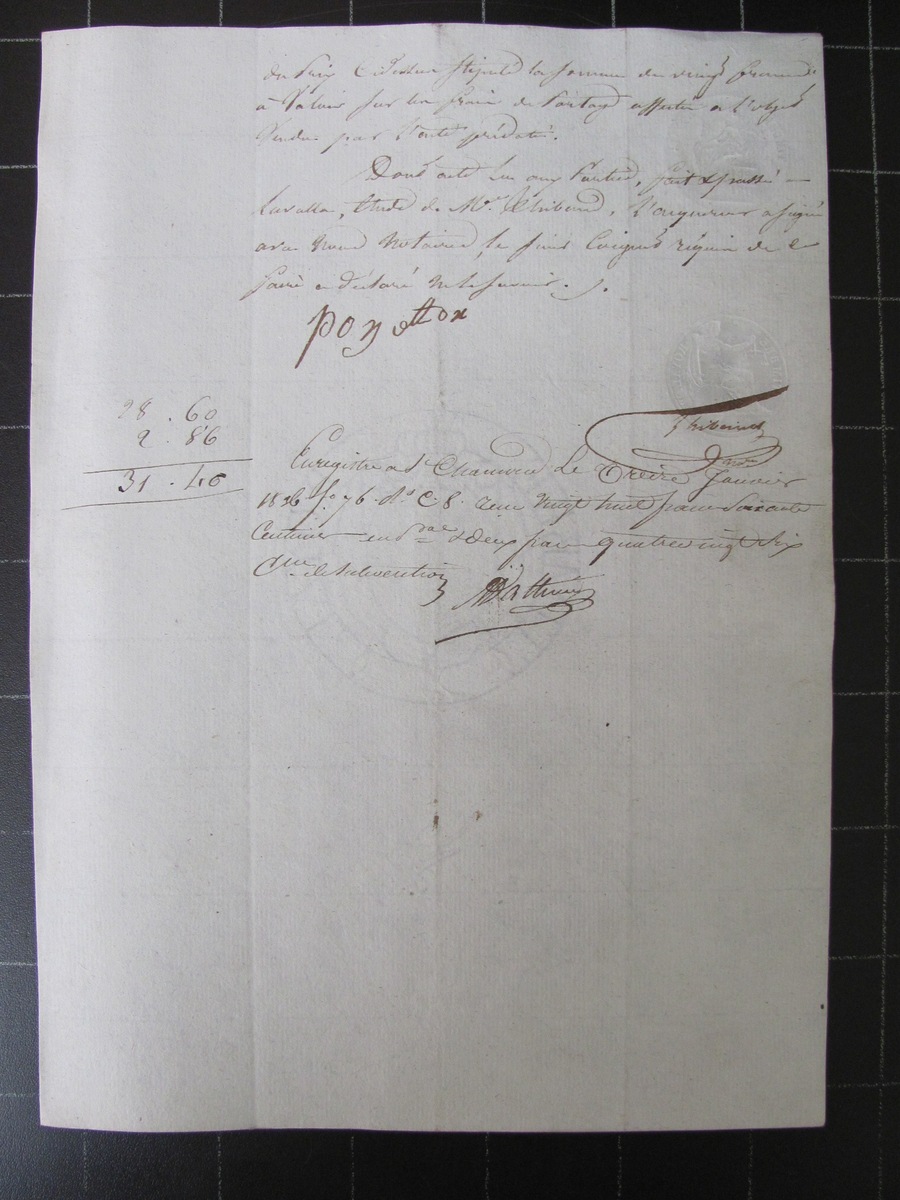 du Prix Ci dessus Stipulé la somme de vingt francs
à Valoir sur les frais de Partage affectés à l'objet
Vendu par l'acte prédaté.
Dont acte Lu aux Parties, fait & passé à
Lavalla, Etude de Me. Thibaud, l'acquereur a signé
avec Nous Notaires, le sieur requis de le
faire a déclaré ne le savoir.
Ponetton
28 . 60
2 . 86
31 . 46
Thibaud
Nre
Enregistré a St Chamond Le Treize Janvier
1826 fo. 76. Ro C. 8. reçu Vingt huit francs Soixante
Centimes en pal & Deux francs quatrevingt Six
Cmes de Subvention